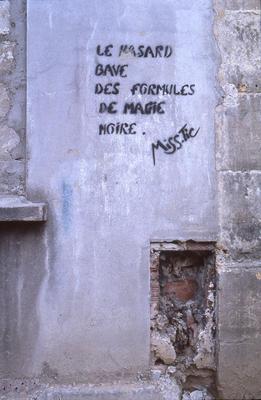 LE HASARD
BAVE
DES FORMULES
DE MAGIE
NOIRE.
Miss.Tic